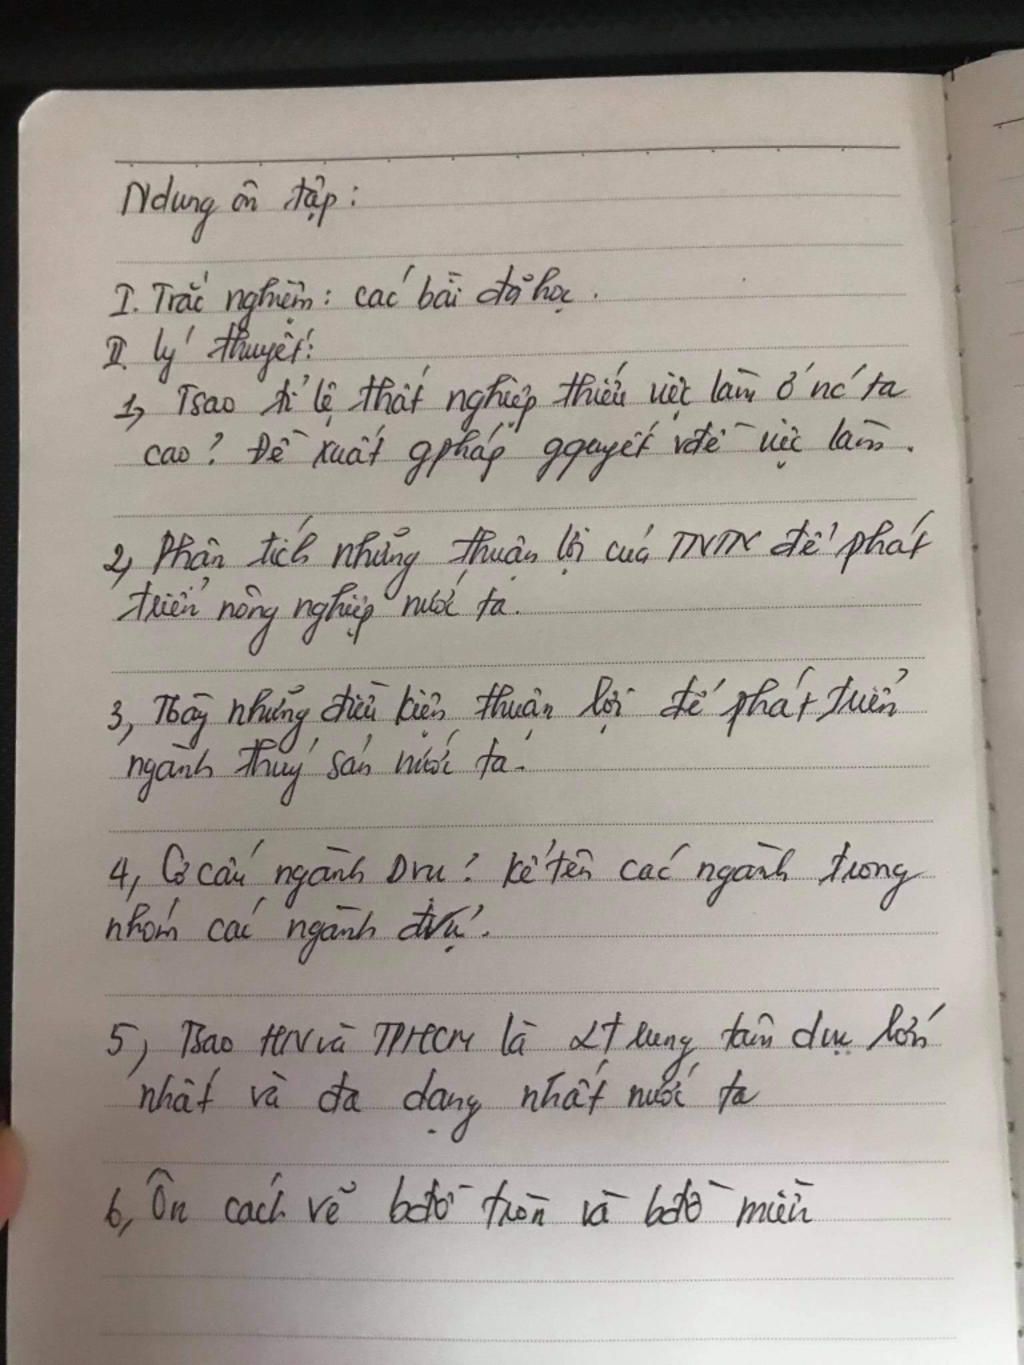 Ndung ôn tập:
I. Trắc nghiệm: các bài đã học.
II. lý thuyết:
1, Tsao tỉ lệ thất nghiệp thiếu việc làm ở nc ta
cao? Đề xuất gpháp gquyết vđề việc làm.
2, Phân tích những thuận lợi của TNTN để phát
triển nông nghiệp nước ta.
3, Tbày những điều kiện thuận lợi để phát triển
ngành thuỷ sản nước ta.
4, Cơ cấu ngành Dvu? Kể tên các ngành trong
nhóm các ngành dvụ.
5, Tsao HN và TPHCM là 2T trung tâm dvu lớn
nhất và đa dạng nhất nước ta
6, Ôn cách vẽ bđồ tròn và bđồ miền